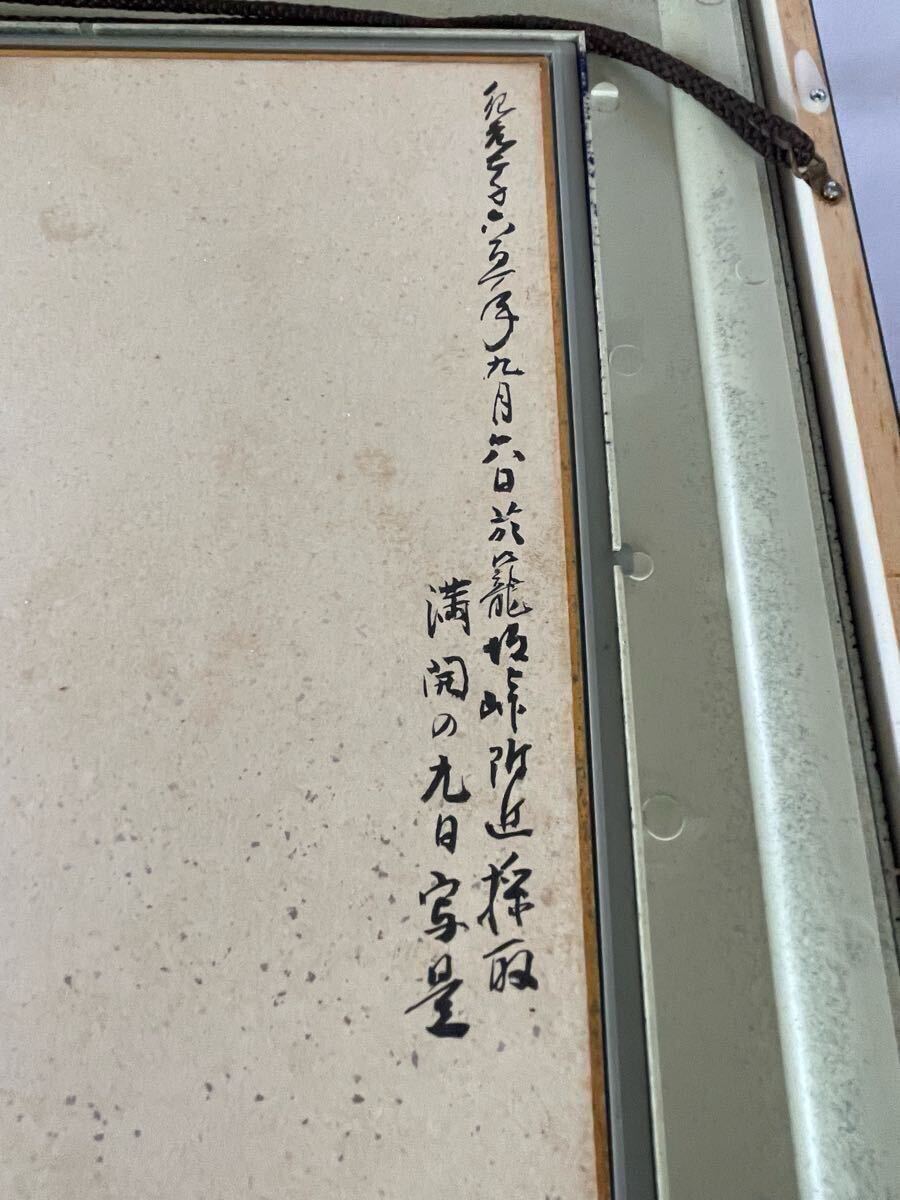 紀元二千六百一年九月六日於籠坂峠附近採取
満開の九日写